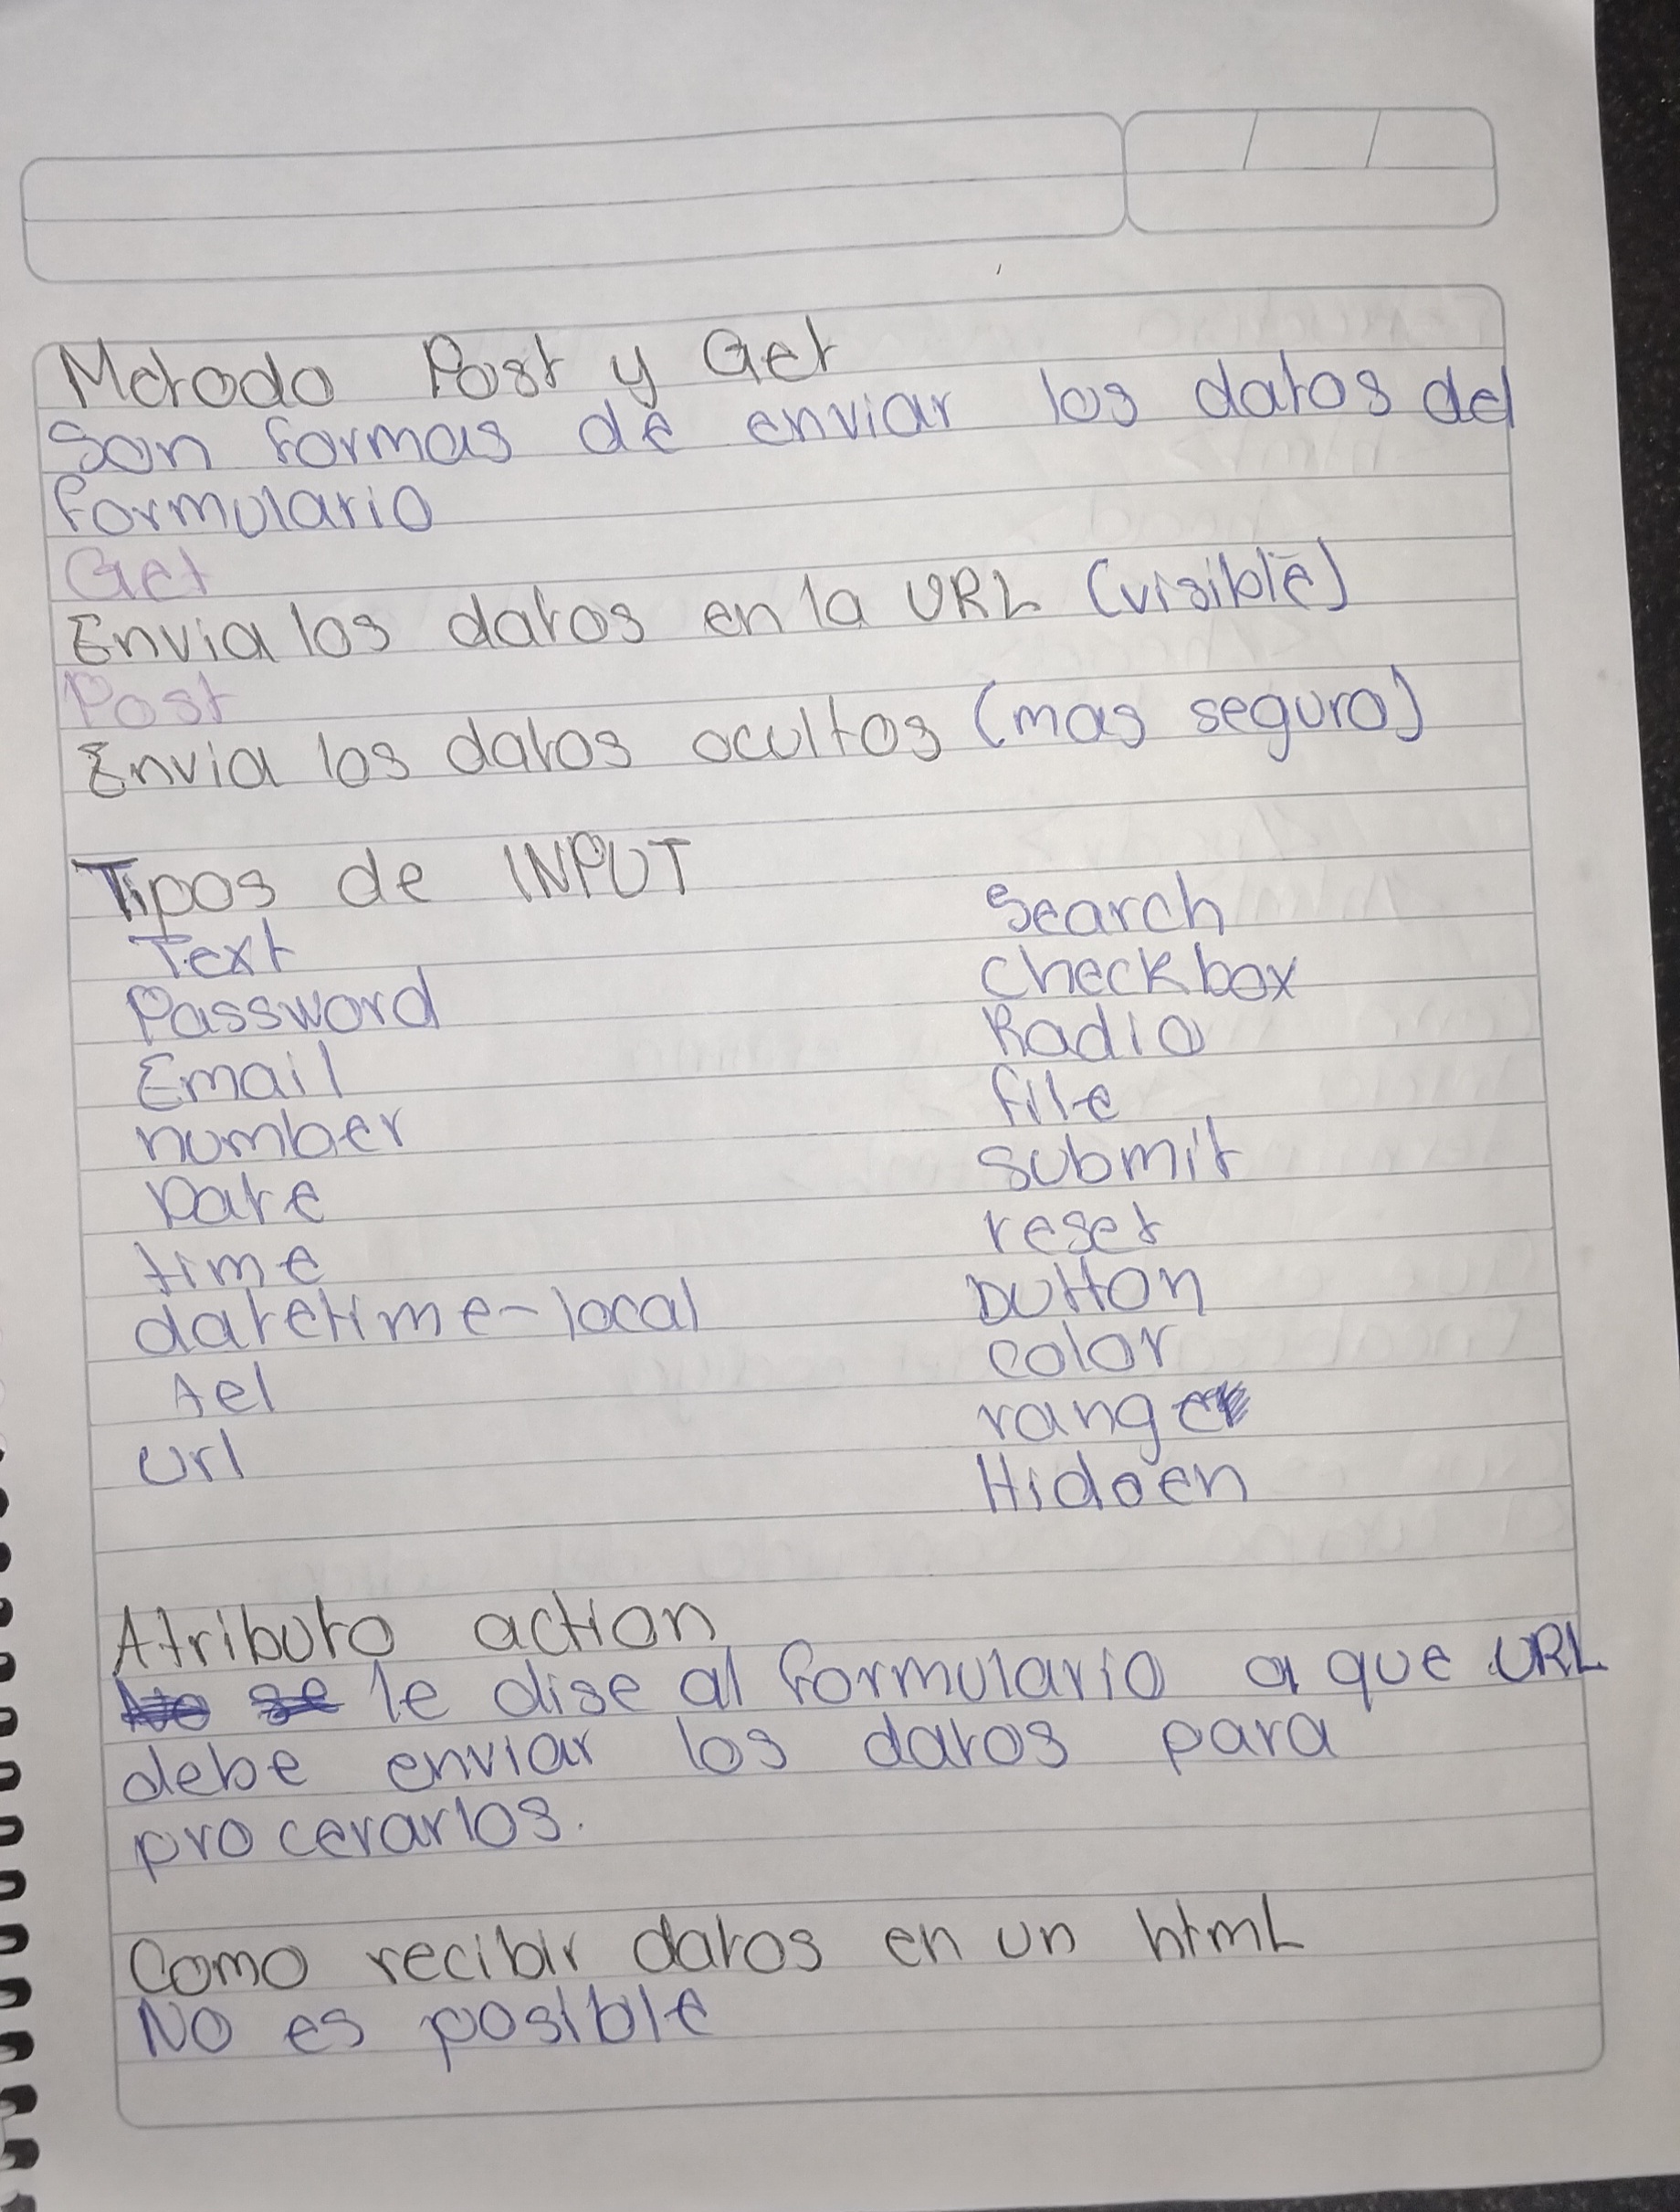 Metodo Post y Get
Son formas de enviar los datos del
formulario
Get
Envia los datos en la URL (visible)
Post
Envia los datos ocultos (mas seguro)
Tipos de INPUT
Text
Password
Email
number
Date
time
datetime-local
tel
url
Search
checkbox
Radio
file
submit
reset
button
color
range
Hidden
Atributo action
le dise al formulario a que URL
debe enviar los datos para
procerarlos.
Como recibir datos en un html
No es posible